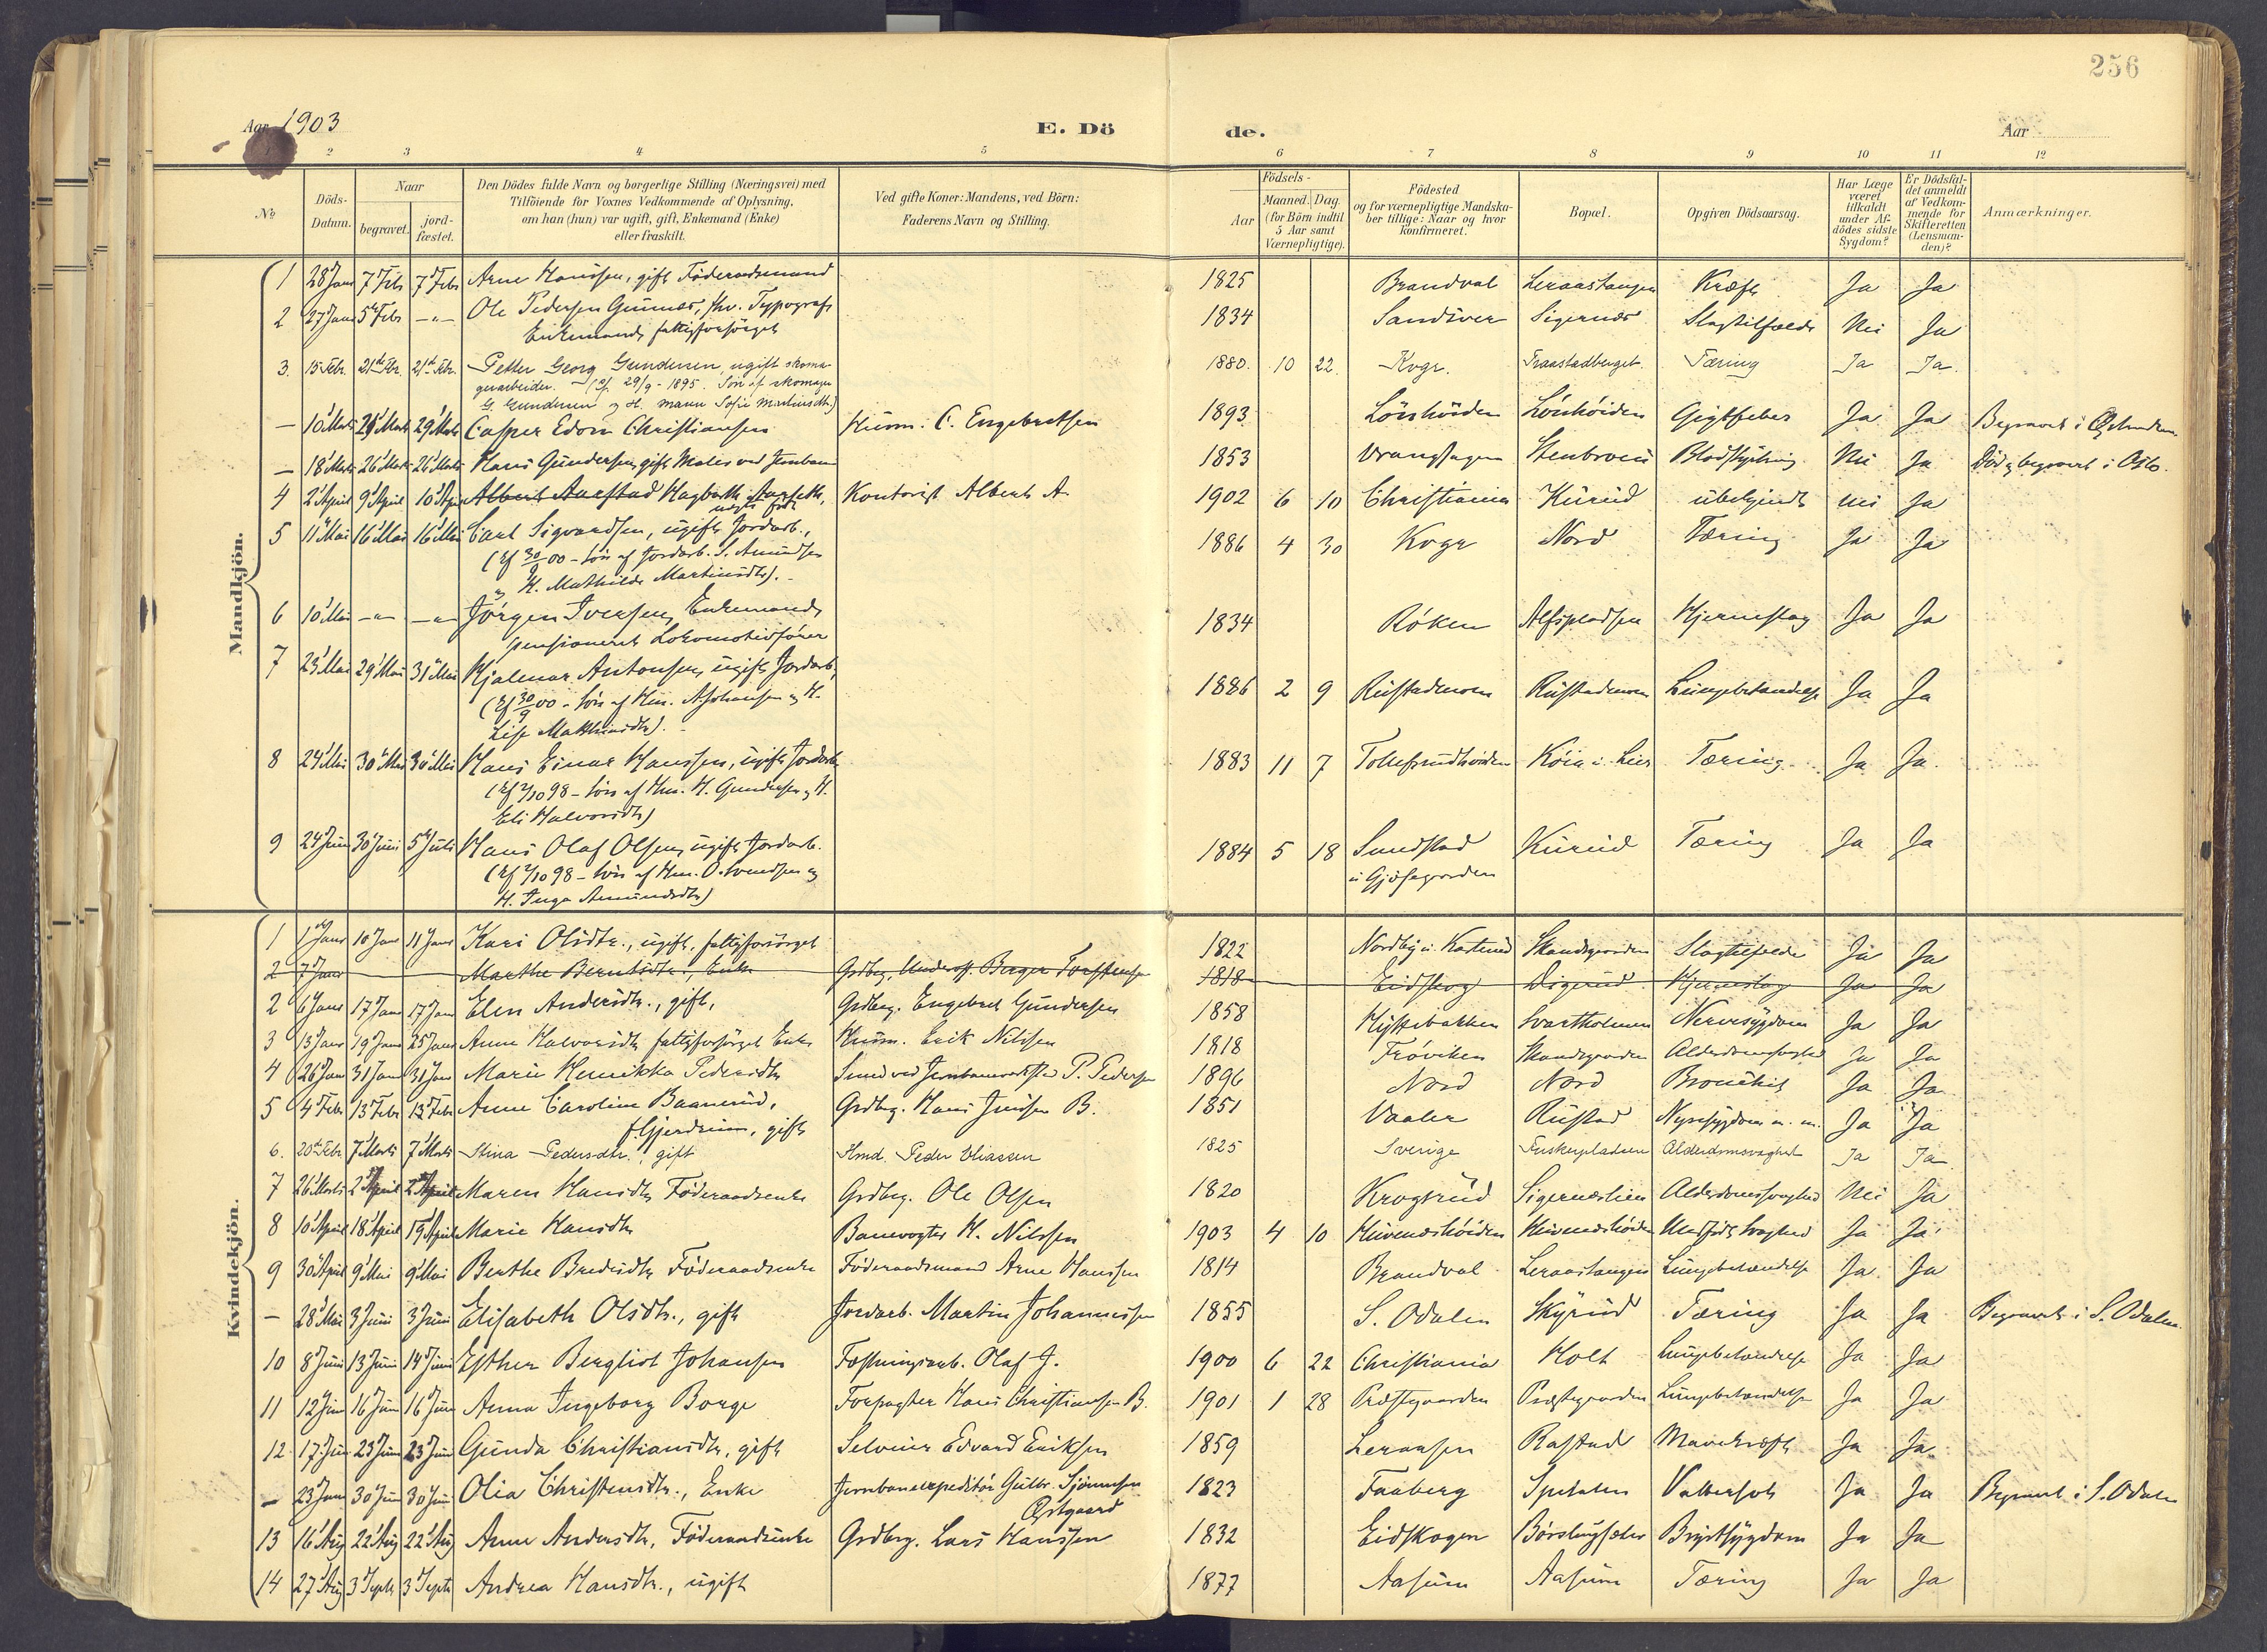 256
Aar 1903
E. Dö
de.
Aar
2 3 4 5 6 7 8 9 10 11 12
No
Döds-Datum.
Naar
begravet.
jord-fæstet.
Den Dödes fulde Navn og borgerlige Stilling (Næringsvei) med
Tilföiende for Voxnes Vedkommende af Oplysning,
om han (hun) var ugift, gift, Enkemand (Enke)
eller fraskilt.
Ved gifte Koner: Mandens, ved Börn:
Faderens Navn og Stilling.
Födsels-
Aar
Maaned. Dag.
(for Börn indtil
5 Aar samt
Værnepligtige).
Födested
og for værnepligtige Mandska-
ber tillige: Naar og hvor
konfirmeret.
Bopæl.
Opgiven Dödsaarsag.
Har Læge
været
tilkaldt
under Af-
dödes sidste
Sygdom?
Er Dödsfal-
det anmeldt
af Vedkom-
mende for
Skifteretten
(Lensman-
den)?
Anmærkninger.
Mandkjön.
1 28 Jan 7 Febr 7 Febr Arne Hanssen, gift Föderaadsmand 1825 Brandval Leraastangen Kræft Ja Ja
2 27 Jan 5 Febr -"- Ole Pedersen Gunnes, fhv. Typograf 1834 Sandsver Sigernes Slagtilfælde Nei Ja
Enkemand, fattigforsörget
3. 15 Febr. 21de Febr. 21de Febr. Petter Georg Gundersen, ugift skoma- 1880. 10 22. Kvgr. Fraastadberget Tæring Ja Ja.
gerarbeider. (Cf. 29/9 - 1895. Sön af skomager
G. Gundersen og H. Maren Sofie Martinsdtr.)
— 10 Marts 29 Marts 29 Marts Casper Edon Christiansen Husm. C. Engebretsen 1893 Lörshöiden Lörshöiden Gigtfeber Ja Ja Begravet i
— 18 Marts 26 Marts 26 Marts Hans Gundersen, gift Maler ved Jernban 1853 Vrangshagen Stenbroen Blodstyrtning Nei Ja Död og begravet i Oslo.
4 2 April 9 April 10 April Albert Aarstad Hagbarth Aarseth, Kontorist Albert A. 1902 6 10 Christiania Kurud ubekjendt nei Ja
uægte født
5 11 Mai 16 Mai 16 Mai Carl Sigvardsen, ugift Jordarb., 1886 4 30 Kvgr Nord Tæring Ja Ja
(Cf 30/9 00 - sön af Jordarb. S. Amundsen
og H. Mathilde Martinsdtr).
6 10 Mai -"- -"- Jörgen Iversen, Enkemand, 1834 Röken Alfspladsen Hjerneslag Ja Ja
pensioneret Lokomotivförer
7 23 Mai 29 Mai 31 Mai Hjalmar Antonsen, ugift Jordarb, 1886 2 9 Rustadmoen Rustadmoen Lungebetændelse Ja Ja
(Cf 30/9 00 - sön af Hm. A. Johansen og H.
Lise Mathisdtr).
8 24 Mai 30 Mai 30 Mai Hans Einar Hanssen, ugift Jordarb 1883 11 7 Tolvsrudhöiden Köia i Lier Tæring Ja Ja.
(Cf 2/10 98 - sön af Hm. H. Gundersen og H.
Eli Halvorsdtr)
9 24 Juni 30 Juni 5 Juli Hans Olaf Olsen, ugift Jordarb. 1884 5 18 Sundstad Kurud Tæring Ja Ja
u Gjösegaarden
(Cf 2/10 98 - sön af Hm. O. Svendsen og
H. Inga Amundsdtr)
Kvindekjön.
1 1 Janr 10 Janr 11 Janr Kari Olsdtr., ugift, fattigforsörget 1822 Nordby u. Katerud Strandgaarden Slagtilfælde Ja Ja
2 7 Janr Marthe Berntsdtr., Enke Grdbrg. Underof. Berger Torstensen 1818 Eidskog Digerud Hjerneslag Ja Ja
2 6 Janr 17 Janr 17 Jan Elen Andersdtr., gift, Grdbrg. Engebret Gundersen 1858 Hyttebakken Svartholmen Nervesygdom Ja Ja
3 13 Janr 19 Janr 25 Janr Anne Halvorsdtr, fattigforsörget Enke Husm. Erik Nilssen 1818 Fröviken Strandgaarden Alderdomssvaghed Ja Ja
4 26 Jan 31 Jan 31 Jan Marie Henrikka Pedersdtr Smed ved Jernbaneverksted P. Pedersen 1896 Nord Nord Bronchit Ja Ja
5 4 Febr 13 Febr 13 Febr Anne Caroline Baanerud, Grdbrg. Hans Jensen B. 1851 Vaaler Rustad Nyresygdom m. m. Ja Ja
f. Gjerdrum, gift
6. 20de Febr 7 Marts 7 Marts Stina Pedersdtr., gift Hmd. Peder Eliassen 1825 Sverige Fuskerpladsen Alderdomssvaghed Ja Ja
7 26 Marts 2 April 2 April Maren Hansdtr, Föderaadsenke Grdbrg. Ole Olsen 1820 Krogsrud Sigernæslien Alderdomssvaghed Nei Ja
8 10 April 18 April 19 April Marie Hansdtr Banevogter H. Nilssen 1903 4 10 Hvivendshöiden Hvivendshöiden Medfödt Svaghed Ja Ja
9 30 April 9 Mai 9 Mai Berthe Bredesdtr, Föderaadsenke Föderaadsmand Arne Hanssen 1814 Brandval Leraastangen Lungebetændelse Ja Ja
— 28 Mai 3 Juni 3 Juni Elisabeth Olsdtr., gift Jordarb. Martin Johannessen 1855 S. Odalen Skyrud Tæring Ja Ja Begravet i S. Odalen.
10 8 Juni 13 Juni 14 Juni Esther Bergliot Johansen Fæstningsarb. Olaf J. 1900 6 22 Christiania Holt Lungebetændelse Ja Ja
11 12 Juni 16 Juni 16 Juni Anna Ingeborg Borge Forpagter Hans Christiansen B. 1901 1 28 Præstegaarden Præstegaarden Lungebetændelse Ja Ja
12 17 Juni 23 Juni 23 Juni Gunda Christiansdtr, gift Selveier Edvard Eriksen 1859 Leraasen Rastad Mavekræft Ja Ja
— 23 Juni 30 Juni 30 Juni Olia Christensdtr., Enke Jernbaneexpeditör Gulbr. Sjönnesen 1823 Faaberg Spetalen Vattersot Ja Ja Begravet i S. Odalen
Östgaard
13 16 Aug 22 Aug 22 Aug Anne Andersdtr, Föderaadsenke Grdbrg. Lars Hanssen 1832 Eidskogen Börslungsæter Brystsygdom Ja Ja
14 27 Aug 3 Septr 3 Septr Andrea Hansdtr., ugift 1877 Aasum Aasum Tæring Ja Ja